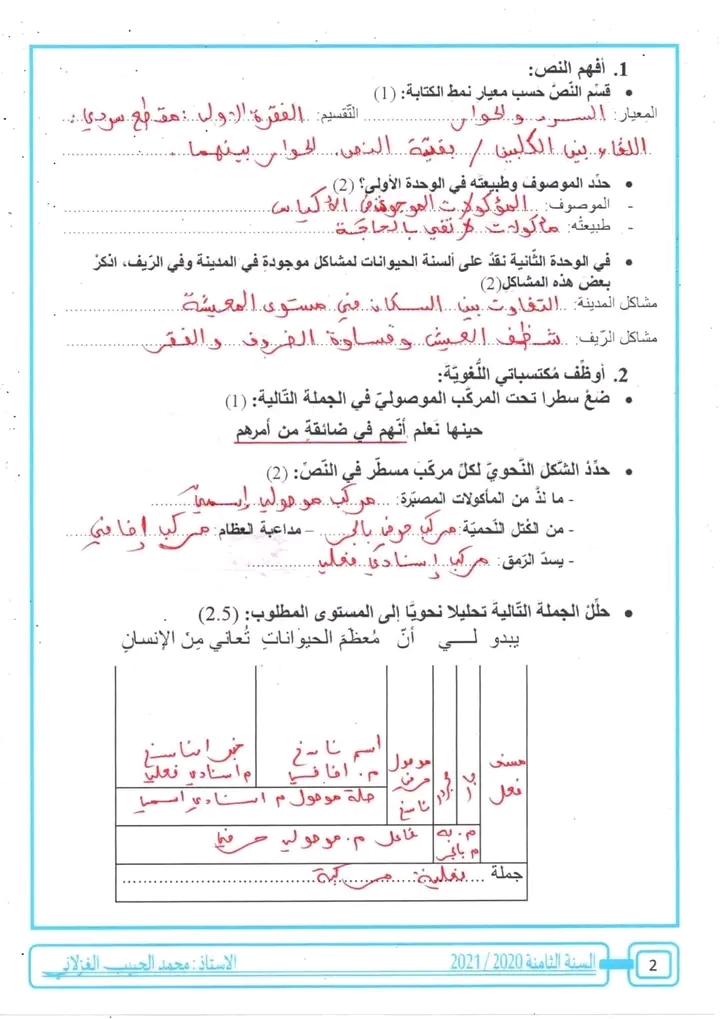 1. أفهم النص:
• قسّم النّصّ حسب معيار نمط الكتابة: (1)
المعيار: السرد والحوار التّقسيم: الفقرة الاولى: مقطع سردي:
اللقاء بين الكلبين / بقيّة النص الحوار بينهما.
• حدّد الموصوف وطبيعتَه في الوحدة الأولى؟ (2)
- الموصوف: المؤكولات الموجودة في الأكياس
- طبيعتُه: مأكولات لا تفي بالحاجة
• في الوحدة الثّانية نقدٌ على ألسنة الحيوانات لمشاكل موجودةٍ في المدينة وفي الرّيف، اذكرْ
بعض هذه المشاكل(2)
مشاكل المدينة: التفاوت بين السكان في مستوى المعيشة
مشاكل الرّيف: شظف العيش وقساوة الظروف والفقر
2. أوظّف مُكتسباتي اللُّغويّة:
• ضعْ سطرا تحت المركّب الموصوليّ في الجملة التّالية: (1)
حينها نَعلم أنّهم في ضائقةٍ من أمرهم
• حدّدْ الشّكلَ النّحويّ لكلّ مركّب مسطّر في النّصّ: (2)
- ما لذّ من المأكولات المصبّرة: مركب موصولي إسمي
- من الكُتل اللّحميّة: مركب حرفي بالجر – مداعبة العظام: مركب إضافي
- يسدّ الرّمق: مركب إسنادي فعلي
• حلّل الجملة التّالية تحليلا نحويّا إلى المستوى المطلوب: (2.5)
يبدو لـــي أنّ مُعظمَ الحيواناتِ تُعاني مِنَ الإنسانِ
مسند فعل
موصول حرفي ناسخ
اسم ناسخ م. اضافي
خبر الناسخ م اسنادي فعلي
صلة موصول م اسنادي اسمي
م. به م بالجر
فاعل م. موصولي حرفي
جملة فعلية مركبة
2
السنة الثامنة 2020 / 2021
الاستاذ : محمد الحبيب الغزلاني